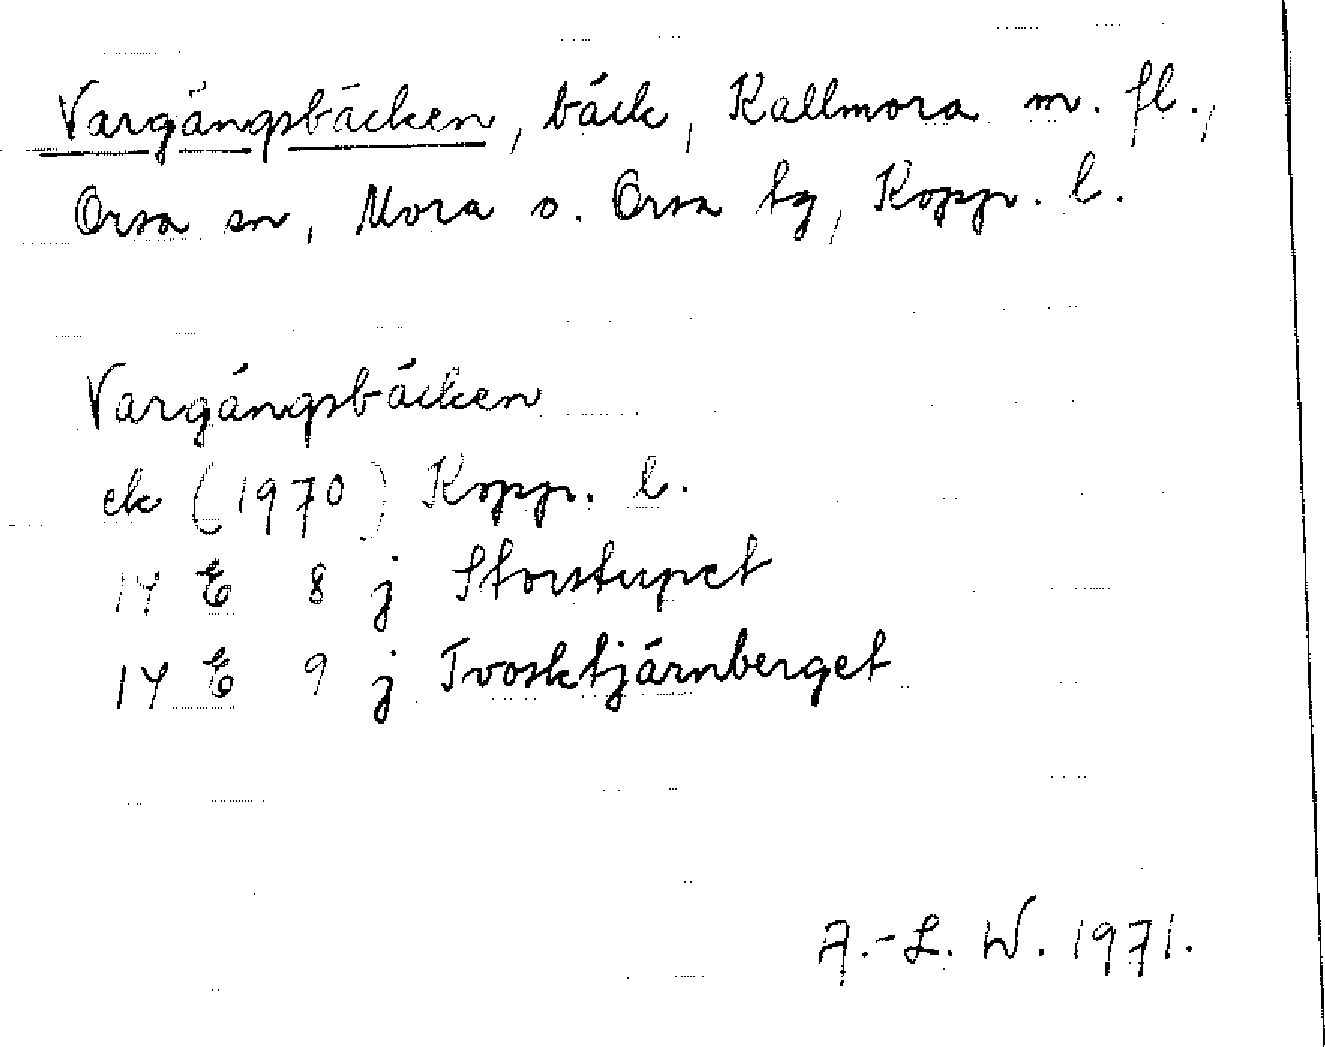 Vargängsbäcken, bäck, Kallmora m. fl.,
Orsa sn, Mora o. Orsa tg, Kopp. l.
Vargängsbäcken
ek (1970) Kopp. l.
14 E 8 j Storstupet
14 E 9 j Tvosktjärnberget
A.-L. W. 1971.